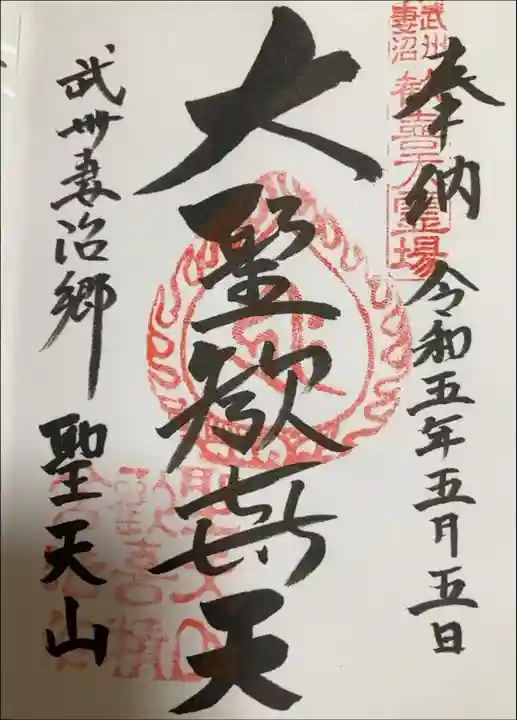 奉納
令和五年五月五日
武州
妻沼
歓喜天霊場
大聖歓喜天
武州妻沼郷
聖天山